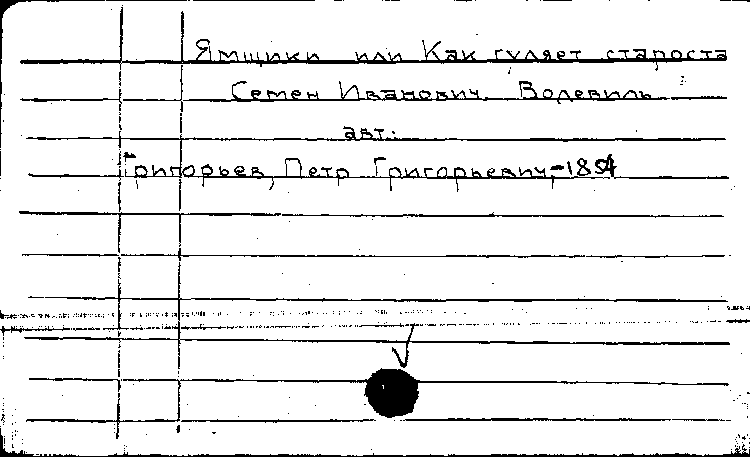 Ямщики или Как гуляет староста
Семен Иванович. Водевиль
авт.:
Григорьев, Петр Григорьевич,-1854